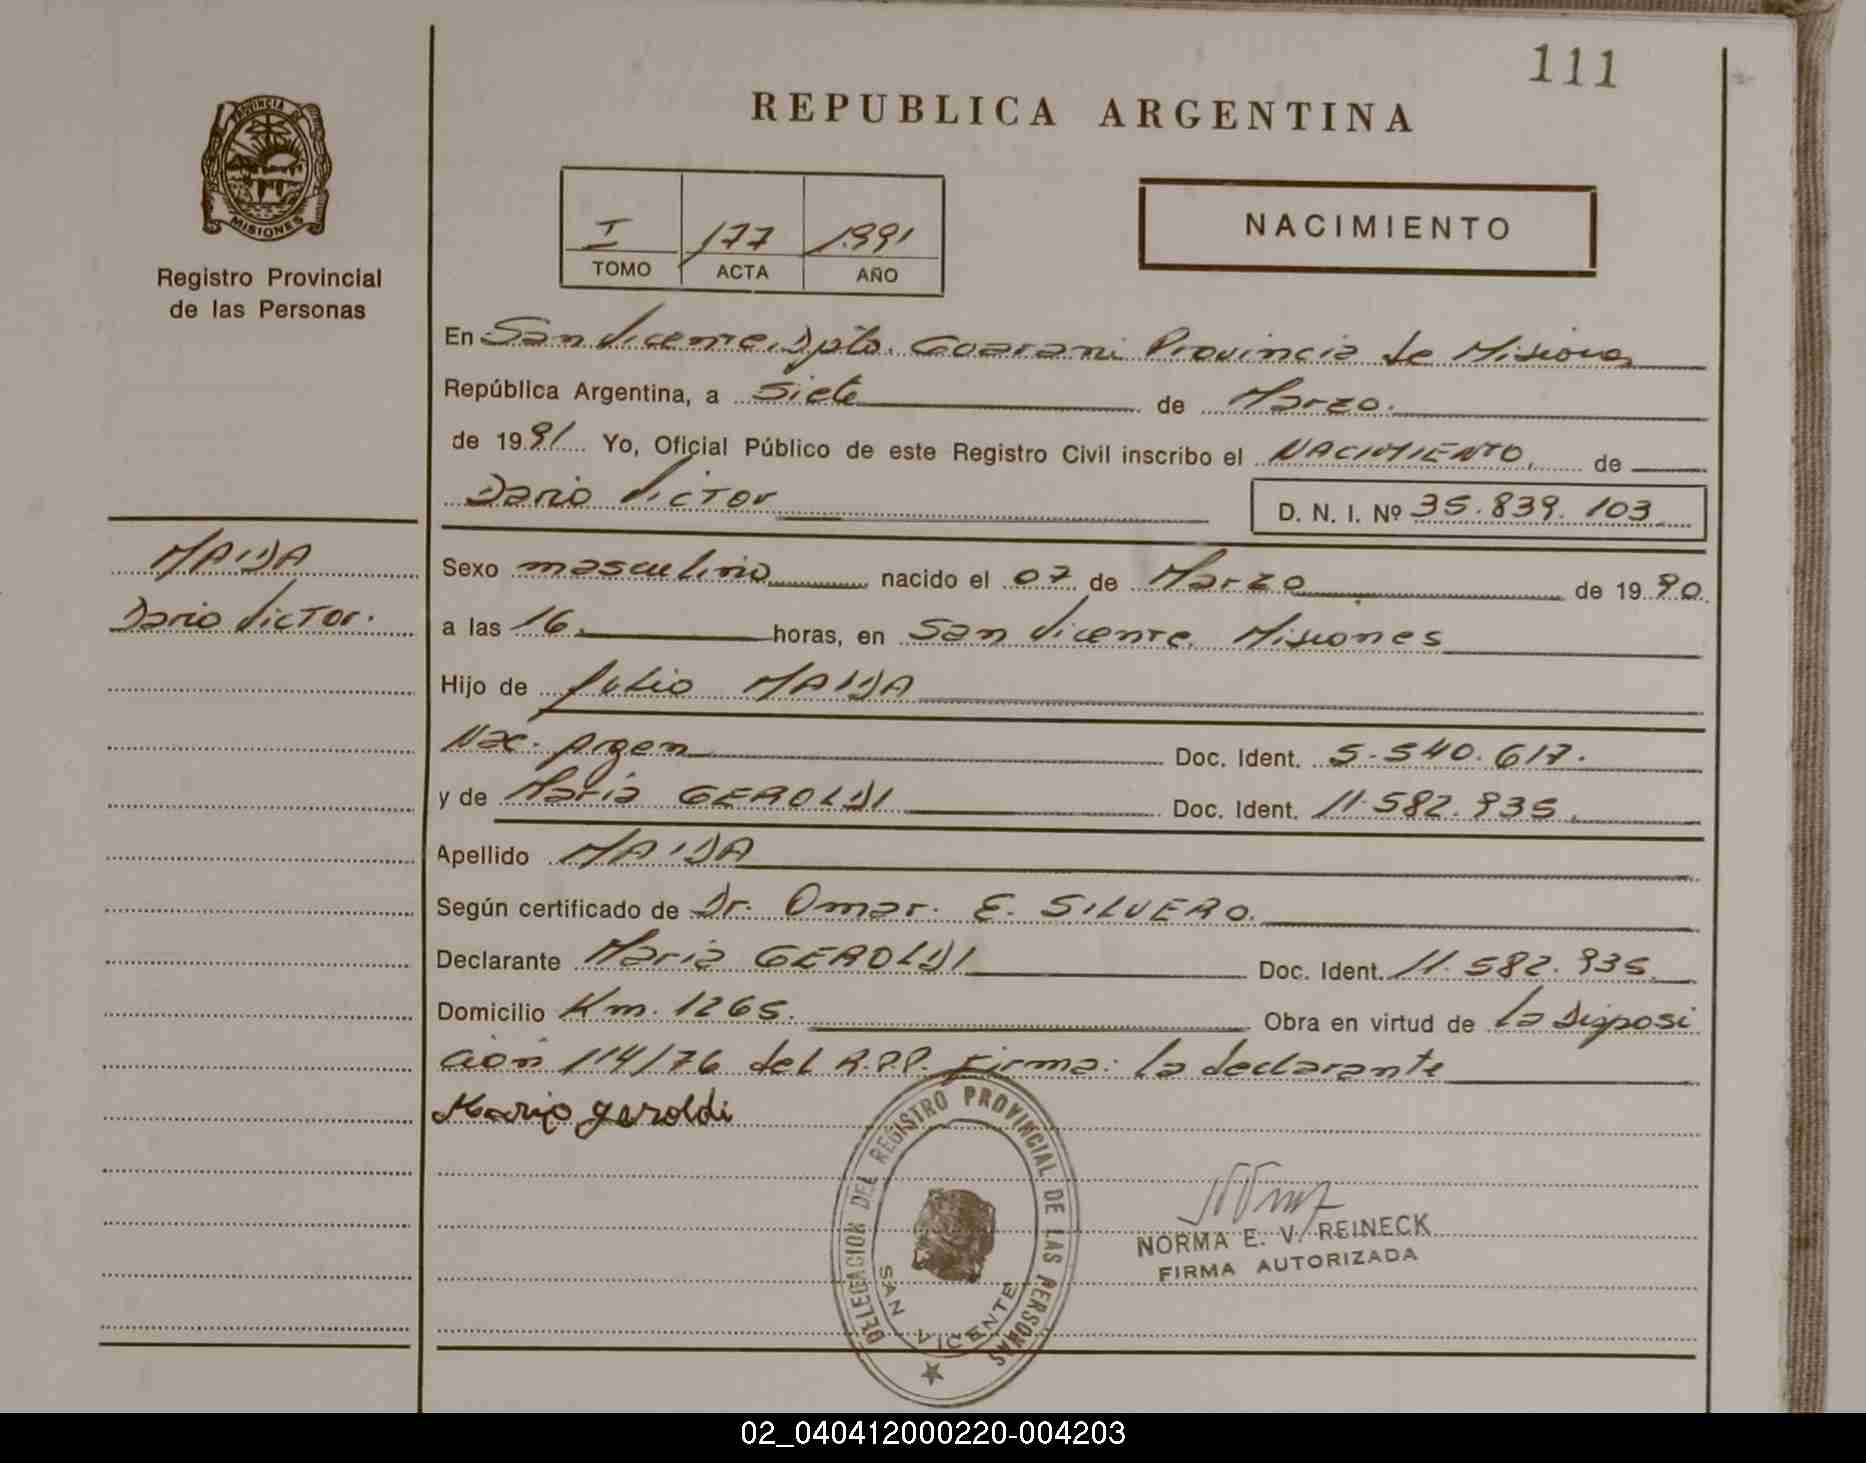 111
REPUBLICA ARGENTINA
PROVINCIA DE
MISIONES
Registro Provincial
de las Personas
I 177 1991
TOMO ACTA AÑO
NACIMIENTO
En San Vicente, Dpto. Guarani Provincia de Misiones
República Argentina, a siete de Marzo.
de 1991 Yo, Oficial Público de este Registro Civil inscribo el NACIMIENTO, de
Dario Victor D. N. I. Nº 35.839.103
MAIDA
Dario Victor.
Sexo masculino nacido el 07 de Marzo de 1990
a las 16 horas, en San Vicente, Misiones
Hijo de Julio MAIDA
Nac. Argen Doc. Ident. 5.540.617.
y de Maria GEROLDI Doc. Ident. 11.582.935
Apellido MAIDA
Según certificado de Dr. Omar. E. SILVERO.
Declarante Maria GEROLDI Doc. Ident. 11.582.935
Domicilio Km. 1265. Obra en virtud de la disposi
ción 114/76 del R.P.P. Firma: la declarante
Maria geroldi
DELEGACION DEL REGISTRO PROVINCIAL DE LAS PERSONAS
SAN VICENTE
NORMA E. V. REINECK
FIRMA AUTORIZADA
02_040412000220-004203